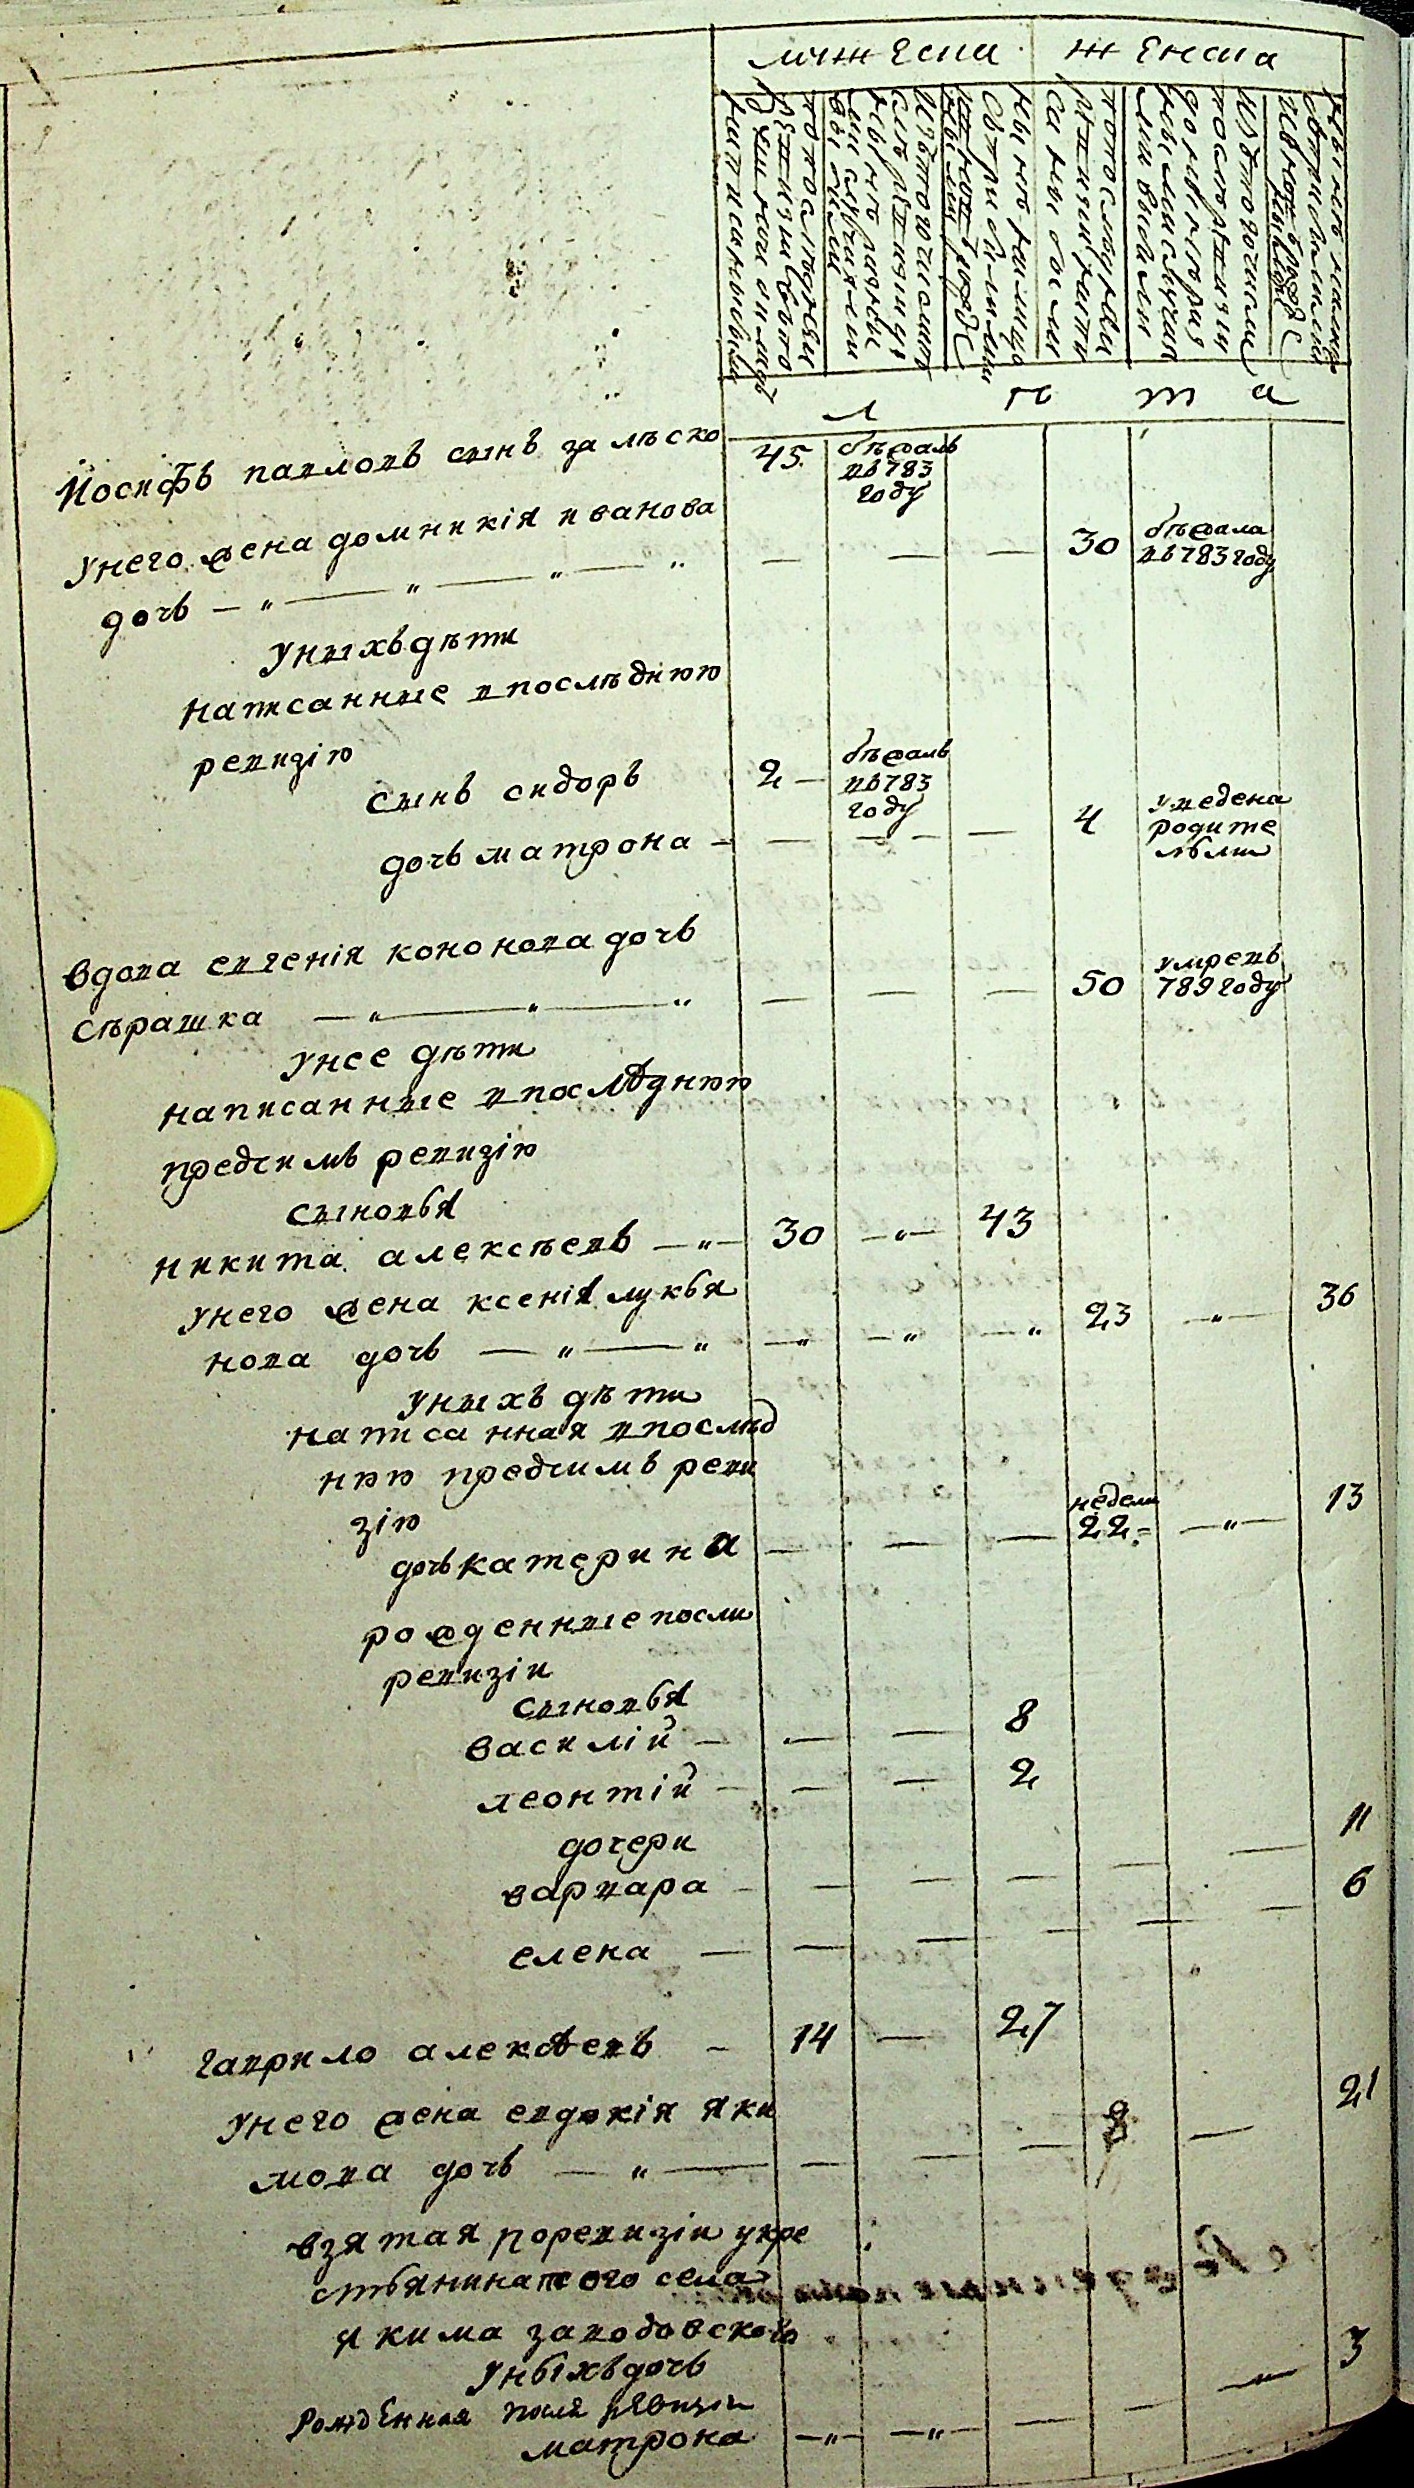 мужеска женска
лѣта
Иосифъ павловъ сынъ залѣско 45 бѣжалъ
въ 783
году
унего жена домникія иванова
дочь — „ — „ — „ — — — 30 бѣжала
въ 783 году
унихъ дѣти
написанные впослѣднюю
ревизію
сынъ сидоръ 2 — бѣжалъ
въ 783
году
дочь матрона — — — — 4 уведена
родите
льми
вдова евгенія кононова дочь
сѣрашка — „ — „ — „ — — — 50 умре въ
789 году
унее дѣти
написанные впослѣднюю
предсимъ ревизію
сыновья
никита алексѣевъ — „ — 30 — „ — 43
унего жена ксенія лукья
нова дочь — „ — „ — „ — „ — „ 23 — „ — 36
унихъ дѣти
написанная впослѣд
нюю предсимъ реви
зію
дочь катерина — — — недели
22 — „ — 13
рожденные посли
ревизіи
сыновья
василій — — — 8
леонтій — — — 2
дочери
варвара — — — — — — 11
елена — — — — — — 6
гаврило алексѣевъ — 14 — 27
унего жена евдокія яки
мова дочь — „ — — — — 8 — 21
взятая поревизіи укре
стьянинатого села
якима заводовского
унихъ дочь
рожденная после ревизіи
матрона — „ — — „ — — — — 3